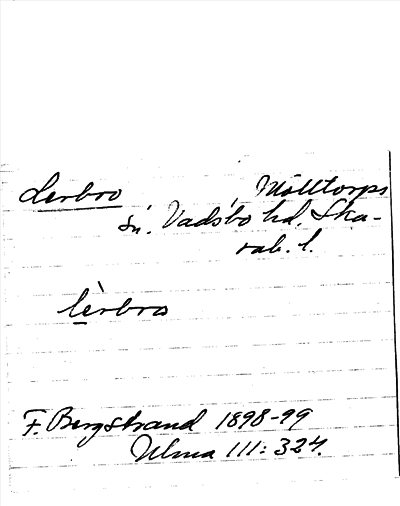 Lerbro Mölltorps
sn. Vadsbo hd. Ska-
rab. l.
lèrbro
F. Bergstrand 1898-99
Ulma 111:324.